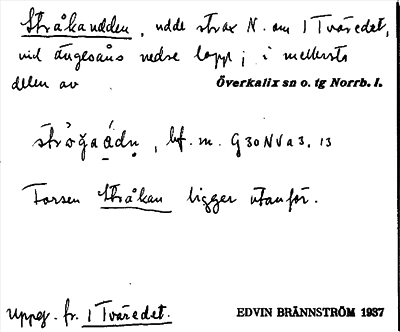 Stråkaudden, udde strax N. om 1 Tväredet,
vid Ängesåns nedre lopp; i mellersta
delen av Överkalix sn o. tg Norrb. l.
bf. m. G30NVa3, 13
Forsen Stråkan ligger utanför.
Uppg. fr. 1 Tväredet. EDVIN BRÄNNSTRÖM 1937